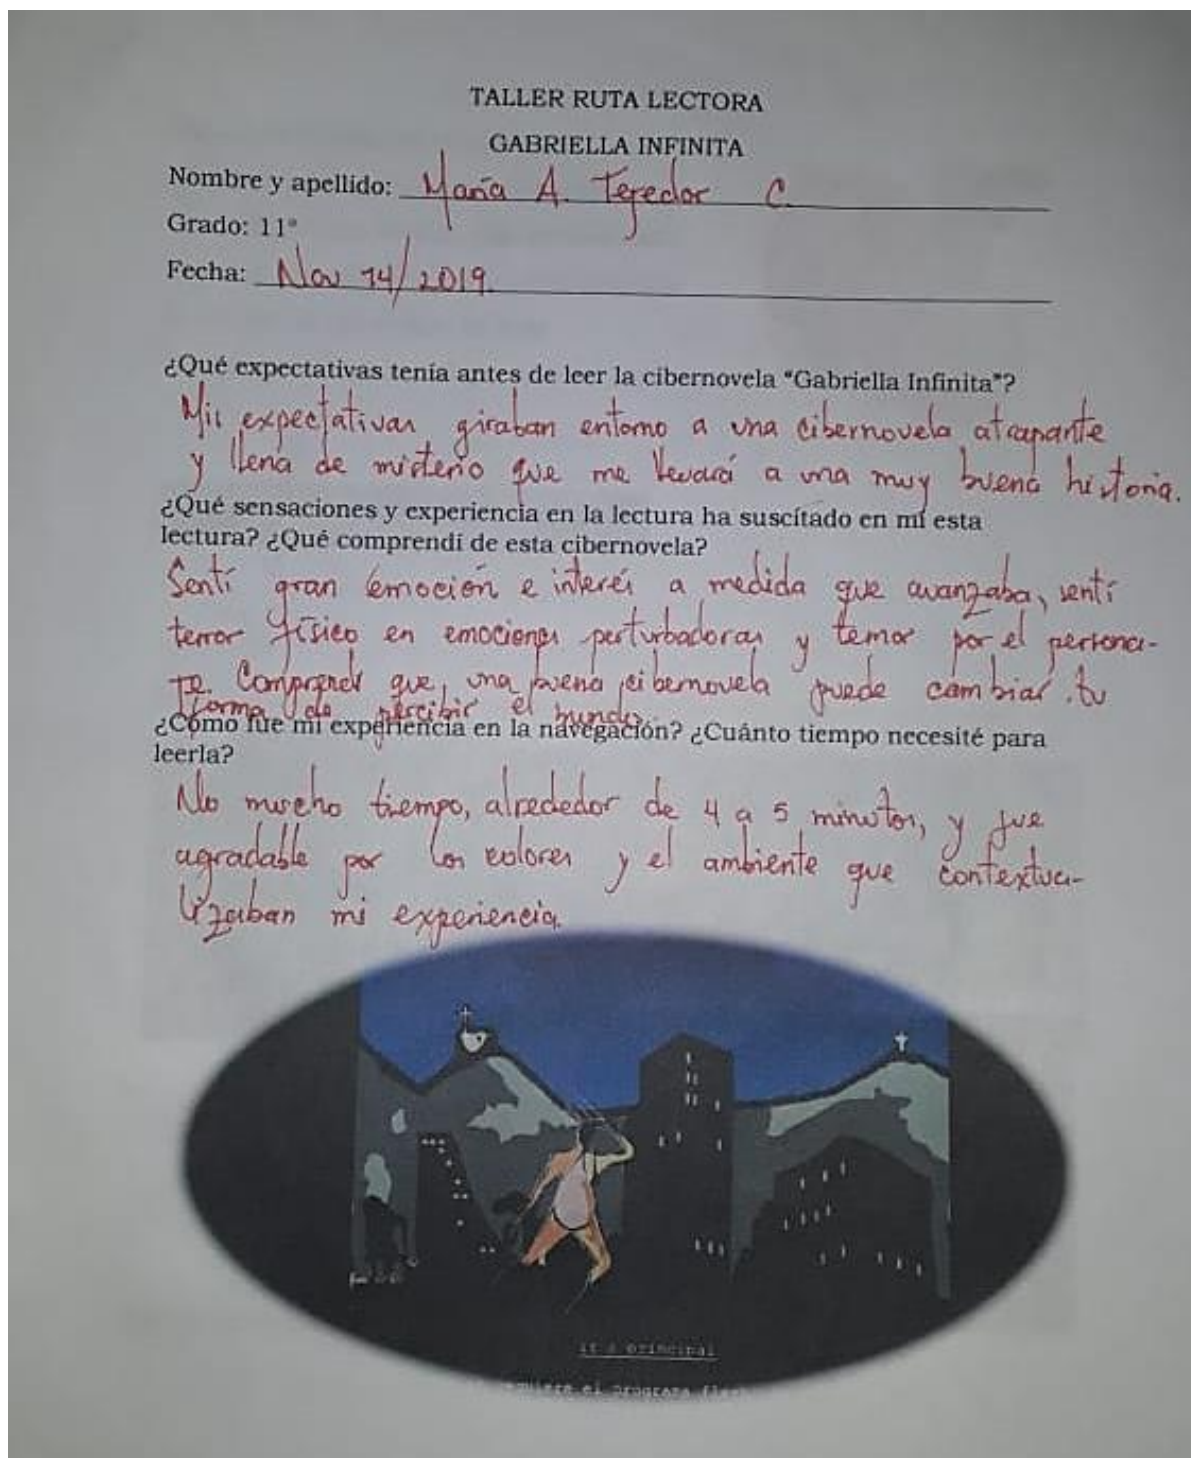 TALLER RUTA LECTORA
GABRIELLA INFINITA
Nombre y apellido: María A. Tejedor C.
Grado: 11°
Fecha: Nov 14/2019.
¿Qué expectativas tenía antes de leer la cibernovela “Gabriella Infinita”?
Mis expectativas giraban entorno a una cibernovela atrapante
y llena de misterio que me llevará a una muy buena historia.
¿Qué sensaciones y experiencia en la lectura ha suscitado en mí esta
lectura? ¿Qué comprendí de esta cibernovela?
Sentí gran emoción e interés a medida que avanzaba, sentí
terror físico en emociones perturbadoras y temor por el persona-
je. Comprendí que una buena cibernovela puede cambiar tu
forma de percibir el mundo.
¿Cómo fue mi experiencia en la navegación? ¿Cuánto tiempo necesité para
leerla?
No mucho tiempo, alrededor de 4 a 5 minutos, y fue
agradable por los colores y el ambiente que contextua-
lizaban mi experiencia.
principal
el programa